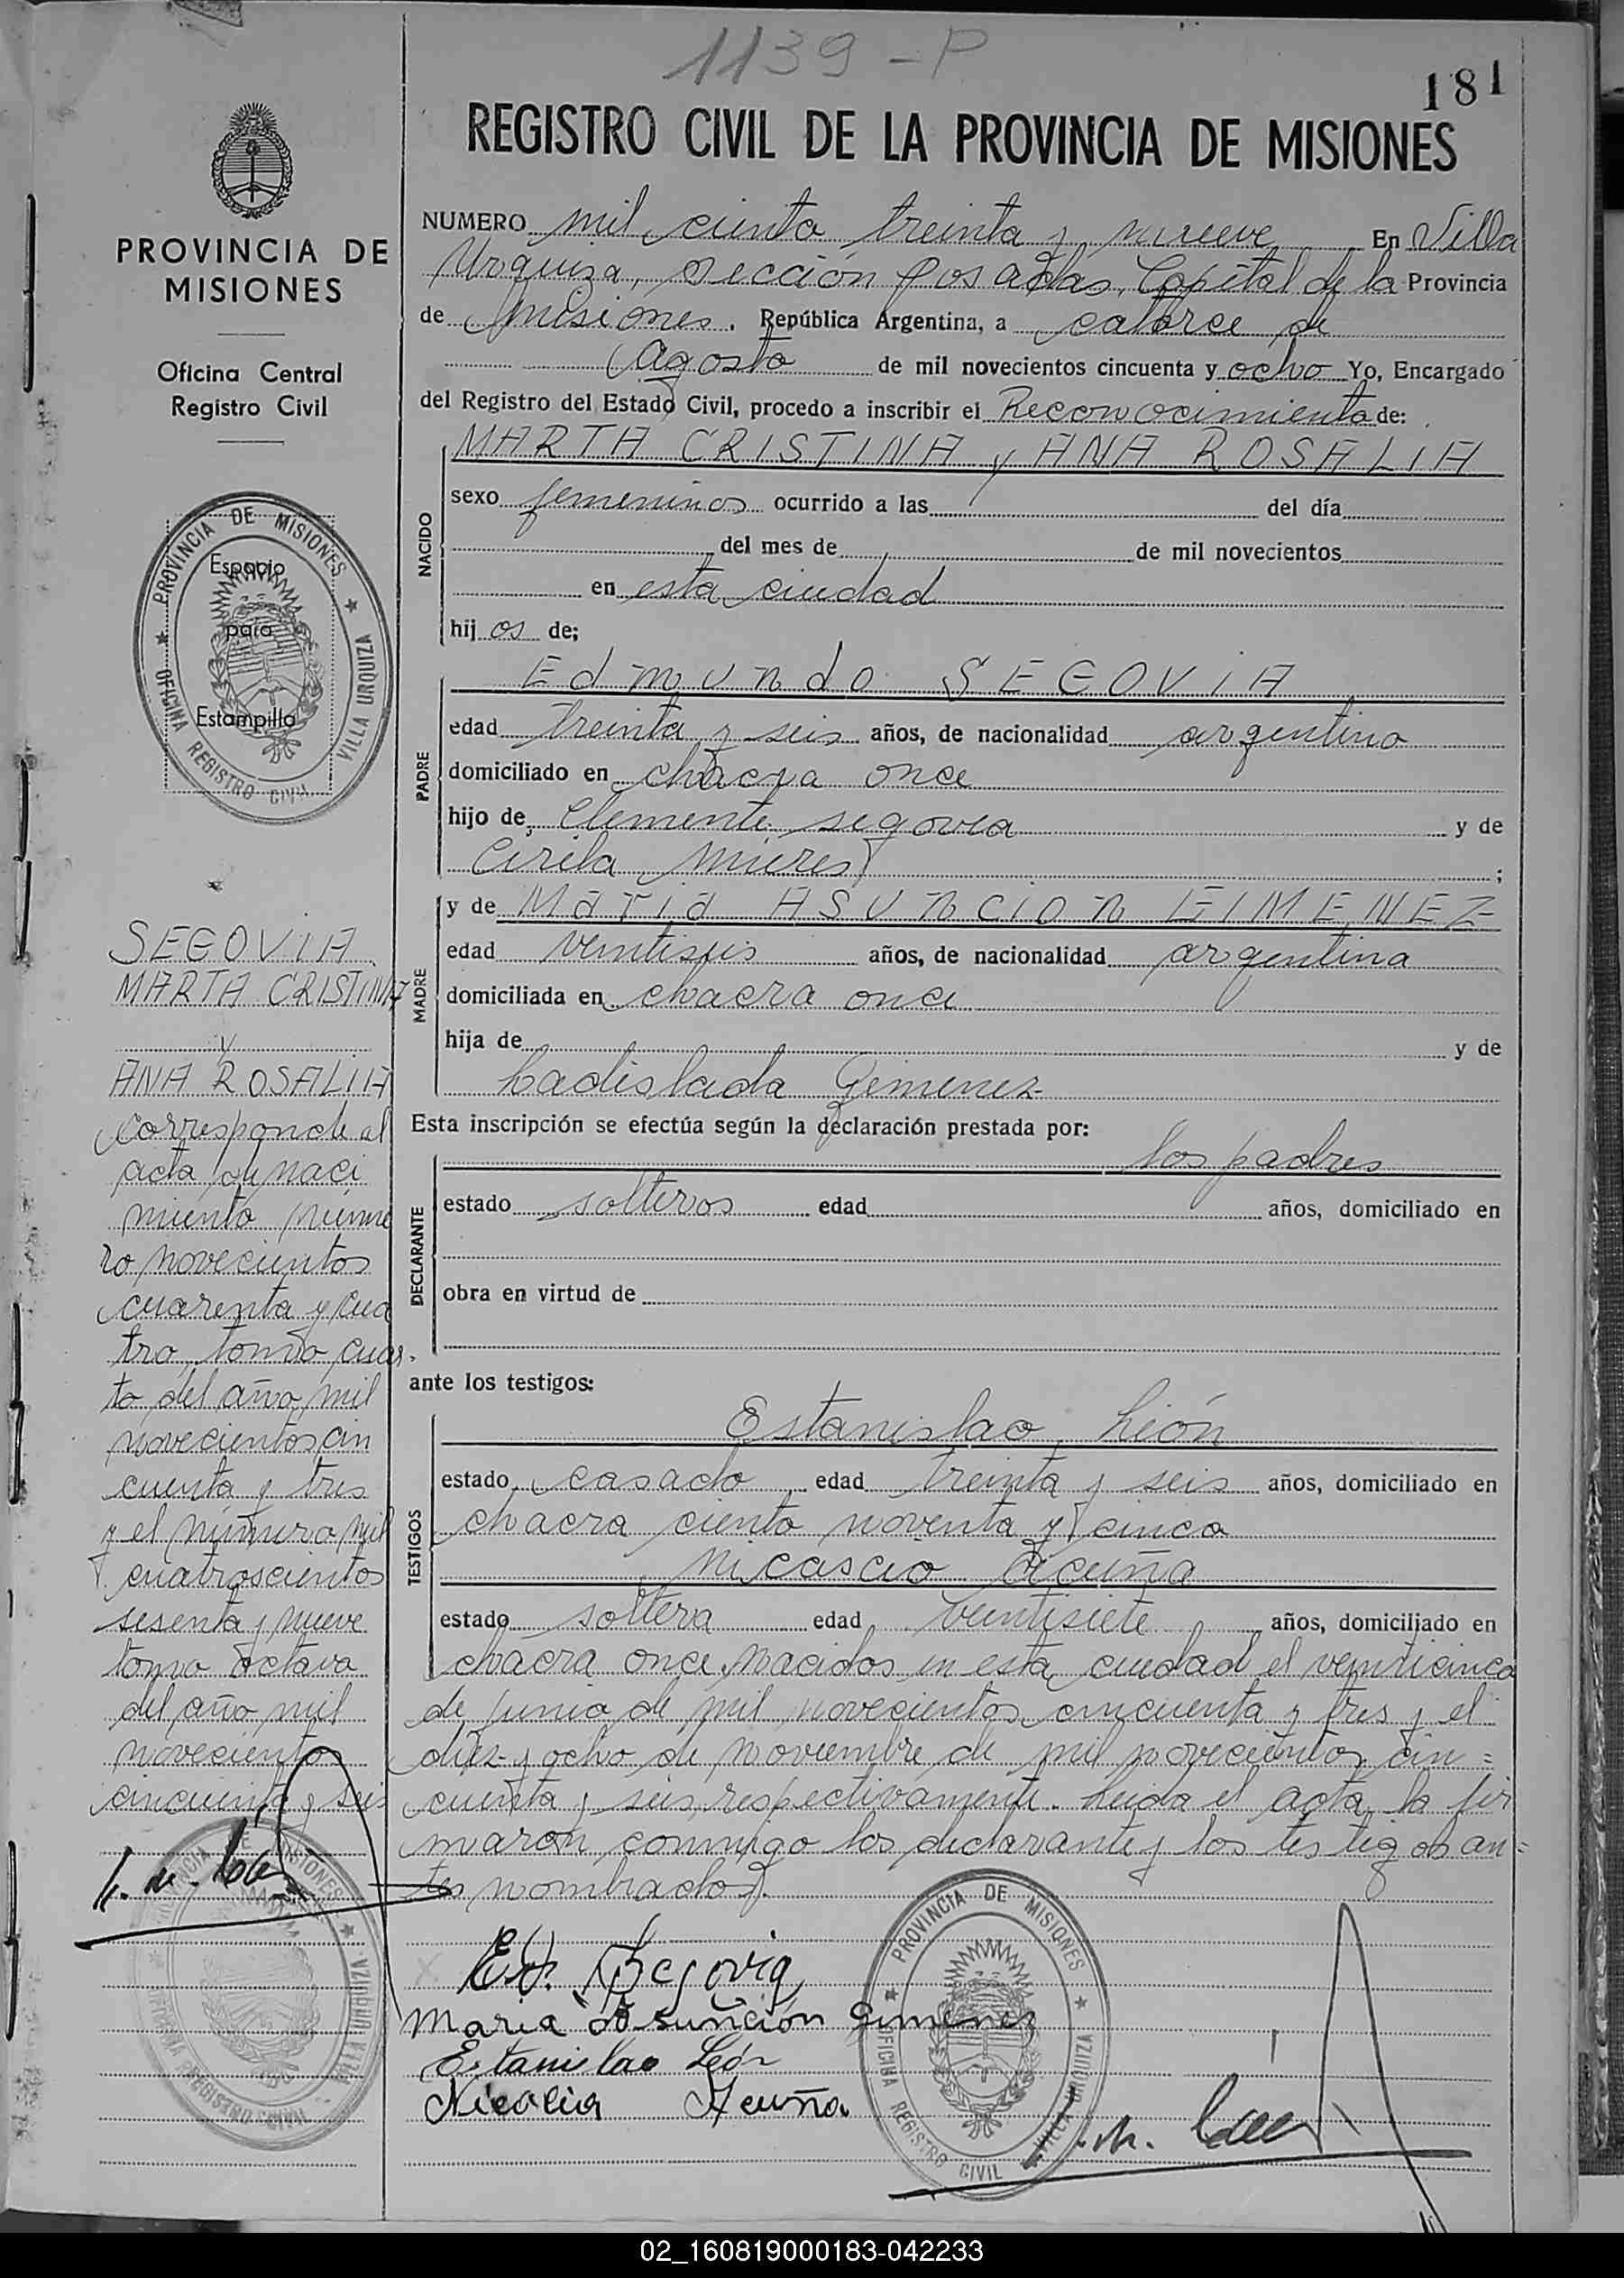 1139-P
181
REGISTRO CIVIL DE LA PROVINCIA DE MISIONES
PROVINCIA DE
MISIONES
Oficina Central
Registro Civil
PROVINCIA DE MISIONES ★ VILLA URQUIZA
OFICINA REGISTRO CIVIL ★
Espacio
para
Estampilla
SEGOVIA
MARTA CRISTINA
y
ANA ROSALIA
Corresponde al
acta de naci
miento núme
ro novecientos
cuarenta y cua
tro, tomo cuar-
to del año mil
novecientos cin
cuenta y tres
y el número mil
cuatroscientos
sesenta y nueve
tomo octavo
del año mil
novecientos
cincuenta y seis
NUMERO mil ciento treinta y nueve En Villa
Urquiza, sección Posadas, Capital de la Provincia
de Misiones. República Argentina, a catorce de
Agosto de mil novecientos cincuenta y ocho Yo, Encargado
del Registro del Estado Civil, procedo a inscribir el Reconocimiento de:
NACIDO
MARTA CRISTINA y ANA ROSALIA
sexo femeninos ocurrido a las del día
del mes de de mil novecientos
en esta ciudad
hij os de;
PADRE
Edmundo SEGOVIA
edad treinta y seis años, de nacionalidad argentino
domiciliado en chacra once
hijo de Clemente Segovia y de
Cirila Mieres ;
MADRE
y de Maria ASUNCION GIMENEZ
edad ventiseis años, de nacionalidad argentina
domiciliada en chacra once
hija de y de
Ladislada Gimenez
Esta inscripción se efectúa según la declaración prestada por:
DECLARANTE
los padres
estado solteros edad años, domiciliado en
obra en virtud de
ante los testigos:
TESTIGOS
Estanislao León
estado casado edad treinta y seis años, domiciliado en
chacra ciento noventa y cinco
Nicascio Acuña
estado soltera edad veintisiete años, domiciliado en
chacra once, nacidos en esta ciudad el veinticinco
de junio de mil novecientos cincuenta y tres y el
diez y ocho de noviembre de mil novecientos cin=
cuenta y seis, respectivamente. Leida el acta, la fir
maron conmigo los declarantes y los testigos an=
tes nombrados.
Ed. Segovia
Maria Asunción Gimenez
Estanislao León
Nicacia Acuña
PROVINCIA DE MISIONES ★ VILLA URQUIZA
OFICINA REGISTRO CIVIL ★
02_160819000183-042233